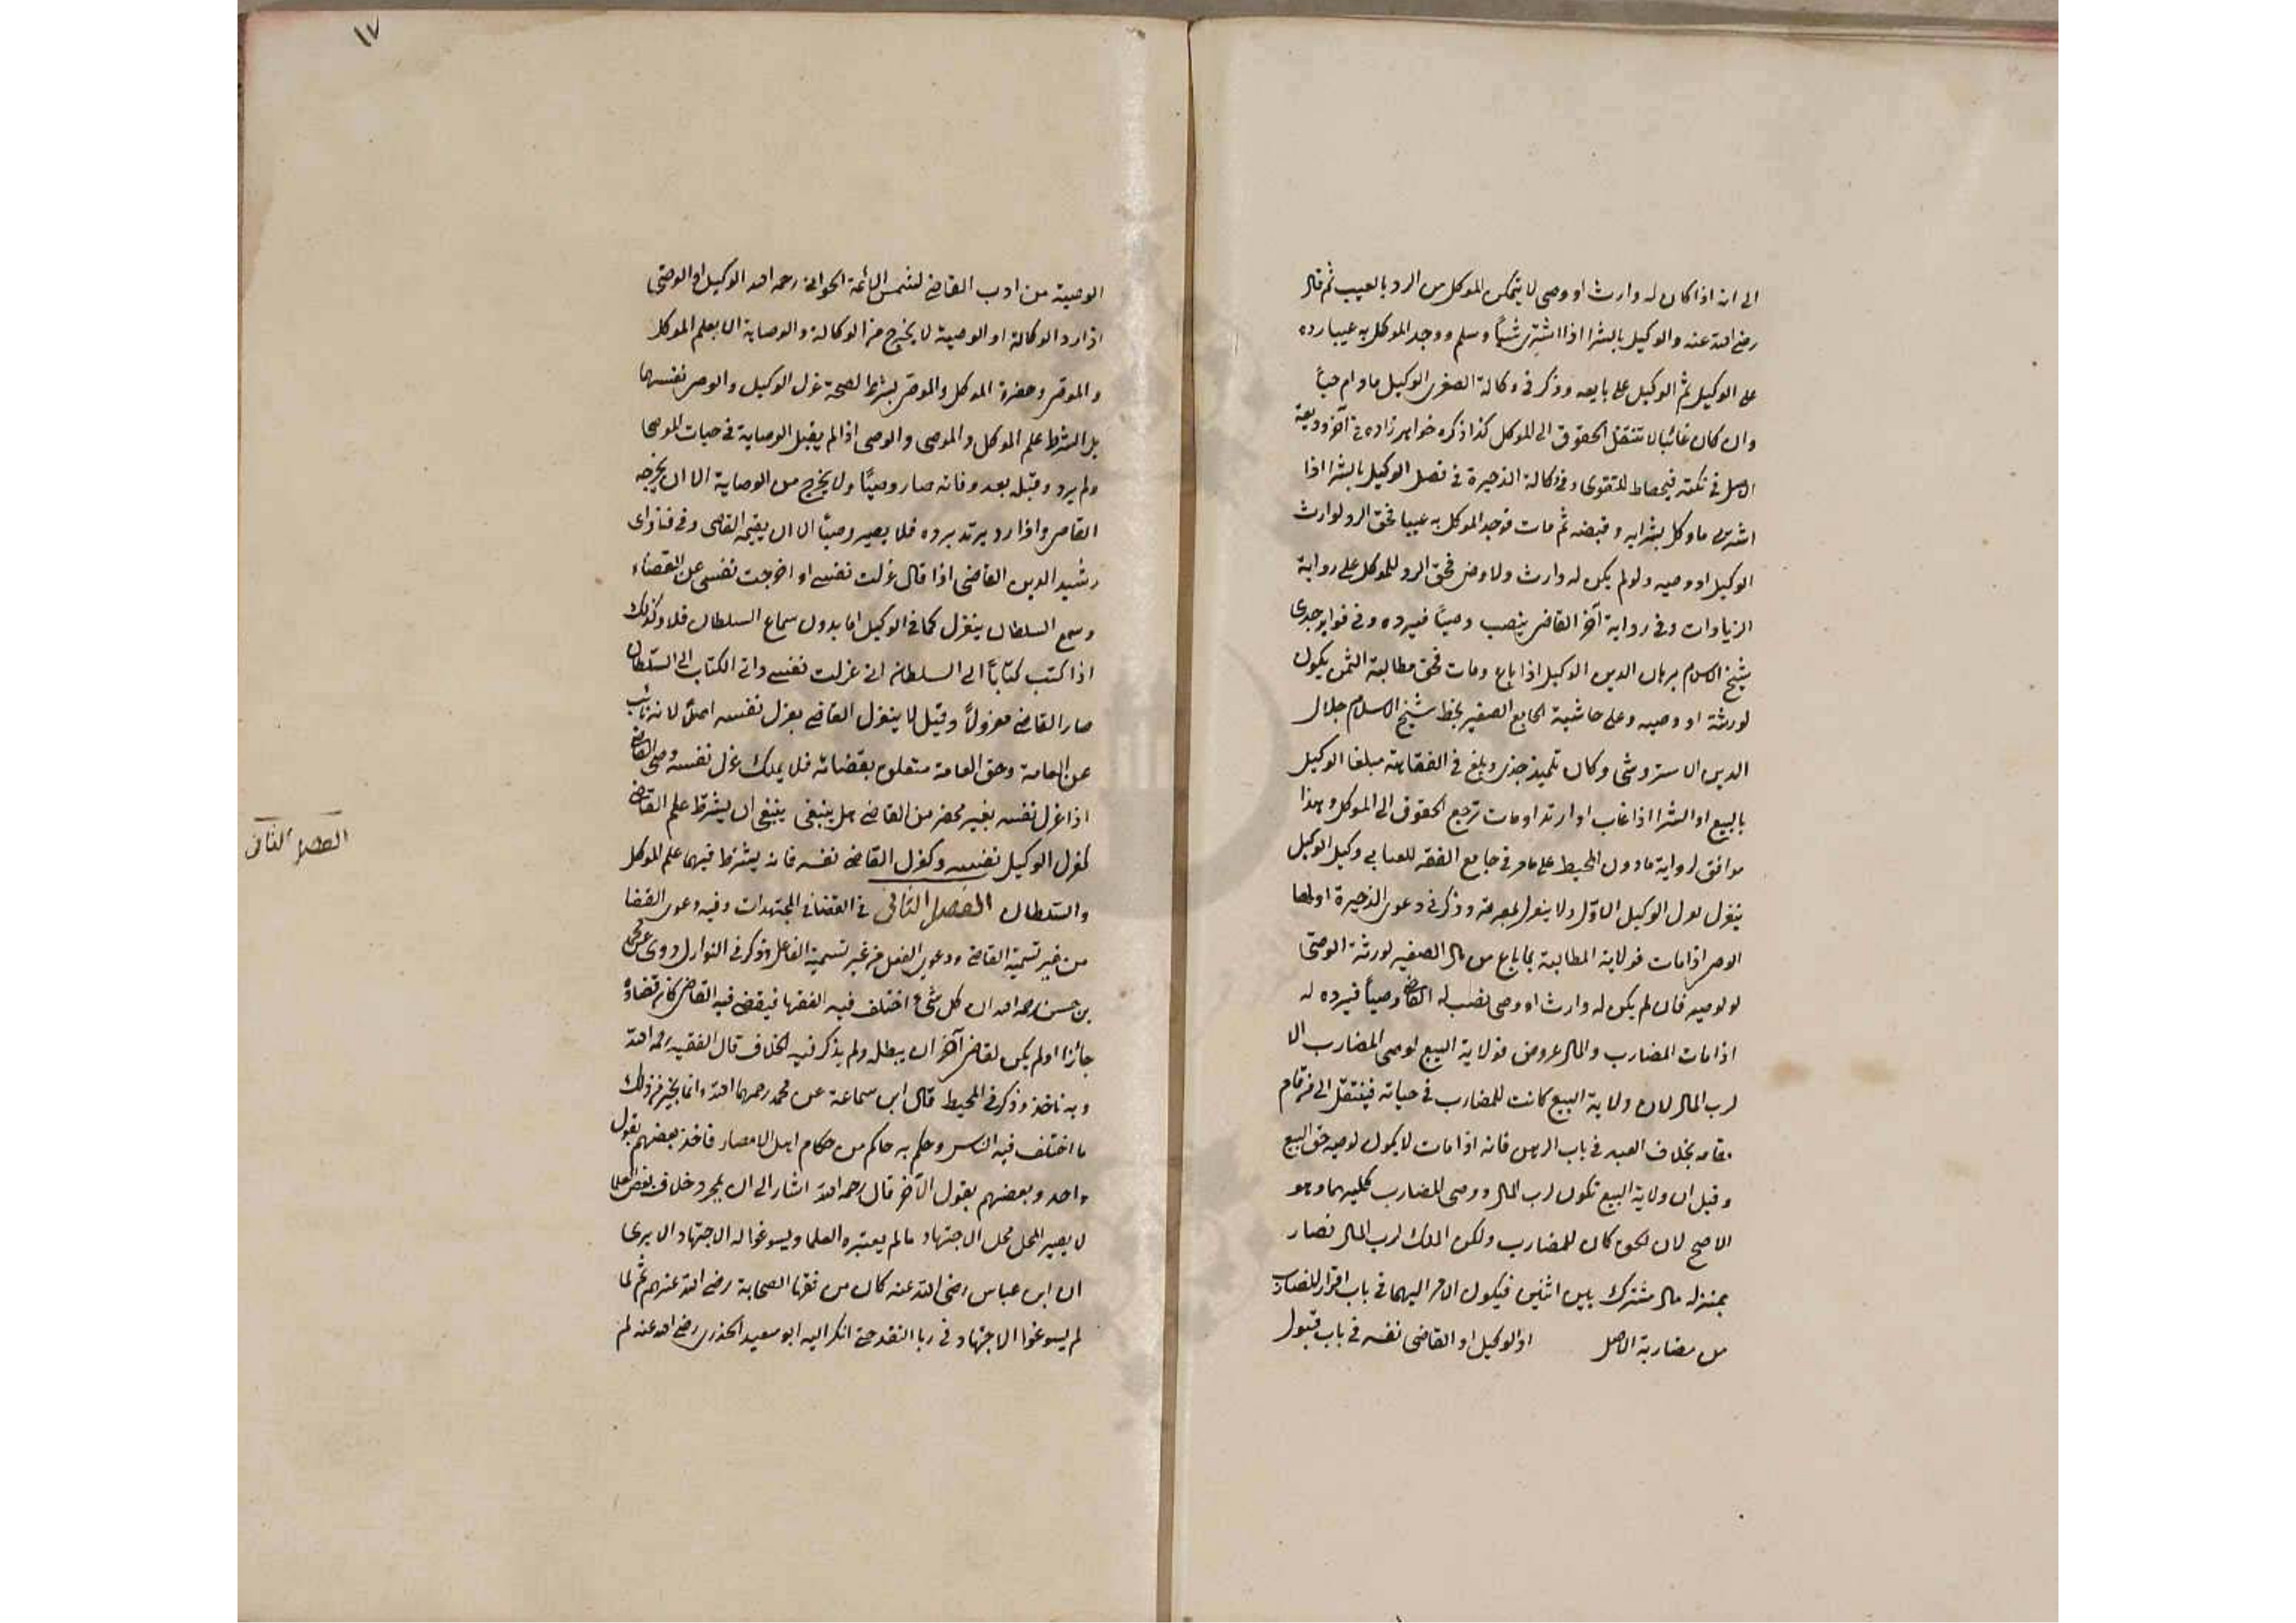 الى انه اذا كان له وارث او وصى لا يتمكن الموكل من الرد بالعيب ثم قال
رضى الله عنه والوكيل بالشرا اذا اشترى شيأ وسلم ووجد الموكل به عيبا رده
على الوكيل ثم الوكيل على بايعه وذكر فى وكالة الصغرى الوكيل ما دام حياً
وان كان غائبا لا تنتقل الحقوق الى الموكل كذا ذكره خواهر زاده فى آخر وديعة
الاصل فى نكته فيحتاط للفتوى وفى وكالة الذخيرة فى فصل الوكيل بالشرا اذا
اشترى ما وكل بشرايه وقبضه ثم مات فوجد الموكل به عيبا فحق الرد لوارث
الوكيل او وصيه ولو لم يكن له وارث ولا وصى فحق الرد للموكل على رواية
الزيادات وفى رواية آخر القاضى ينصب وصياً فيرده وفى فوايد جدى
شيخ الاسلام برهان الدين الوكيل اذا باع ومات فحق مطالبة الثمن يكون
لورثة او وصيه وعلى حاشية الجامع الصغير بخط شيخ الاسلام جلال
الدين الاستروشنى وكان تلميذ جدى وبلغ فى الفقاهة مبلغا الوكيل
بالبيع او الشرا اذا غاب او ارتد او مات ترجع الحقوق الى الموكل وهذا
موافق لرواية ماذون المحيط على ما مر فى جامع الفقه للعتابى وكيل الوكيل
ينعزل بعزل الوكيل الاول ولا ينعزل بموته وذكر فى دعوى الذخيرة اولها
الوصى اذا مات فولاية المطالبة بما باع من مال الصغير لورثة الوصى
لو لوصيه فان لم يكن له وارث او وصى نصب له القاضى وصياً فيرده له
اذا مات المضارب والمال عروض فولاية البيع لوصى المضارب الا
لرب المال لان ولاية البيع كانت للمضارب فى حياته فينتقل الى من قام
مقامه بخلاف العبد فى باب الرهن فانه اذا مات لا يكون لوصيه حق البيع
وقيل ان ولاية البيع تكون لرب المال ووصى المضارب كليهما وهو
الاصح لان الحق كان للمضارب ولكن الملك لرب المال فصار
بمنزلة مال مشترك بين اثنين فيكون الامر اليهما فى باب اقرار المضارب
من مضاربة الاصل اذ الوكيل او القاضى نفسه فى باب قبول
١٧
الوصية من ادب القاضى لشمس الائمة الحلوانى رحمه الله الوكيل او الوصى
اذا رد الوكالة او الوصية لا يخرج من الوكالة والوصاية الا بعلم الموكل
والموصى وحضرة الموكل والموصى ليشرط لصحة عزل الوكيل والوصى نفسهما
بل الشرط علم الموكل والموصى والوصى اذا لم يقبل الوصاية فى حيات الموصى
ولم يرد وقبله بعد وفاته صار وصياً ولا يخرج من الوصاية الا ان يخرجه
القاضى واذا رد يرتد برده فلا يصير وصياً الا ان يقيمه القاضى وفى فتاواى
رشيد الدين القاضى اذا قال عزلت نفسى او اخرجت نفسى عن القضاء
وسمع السلطان ينعزل كما فى الوكيل اما بدون سماع السلطان فلا وكذلك
اذا كتب كتاباً الى السلطان انى عزلت نفسى واتى الكتاب الى السلطان
صار القاضى معزولاً وقيل لا ينعزل القاضى بعزل نفسه اصلاً لانه نائب
عن العامة وحق العامة متعلق بقضائه فلا يملك عزل نفسه وصى القاضى
اذا عزل نفسه بغير محضر من القاضى هل ينبغى ينبغى ان يشرط علم القاضى
كعزل الوكيل نفسه وكعزل القاضى نفسه فانه يشرط فيهما علم الموكل
والسلطان الفصل الثانى فى القضا فى المجتهدات وفيه دعوى القضا
الفصل الثانى
من غير تسمية القاضى ودعوى الفعل من غير تسمية الفاعل وذكر فى النوازل روى عن محمد
بن حسن رحمه الله ان كل شئ اختلف فيه الفقها فيقضى فيه القاضى كان قضاؤه
جائزا ولم يكن لقاض آخر ان يبطله ولم يذكر فيه الخلاف قال الفقيه رحمه الله
وبه ناخذ وذكر فى المحيط قال ابن سماعة عن محمد رحمهما الله وانما يجيز من ذلك
ما اختلف فيه الناس وحكم به حاكم من حكام اهل الامصار فاخذ بعضهم بقول
واحد وبعضهم بقول الآخر قال رحمه الله اشار الى ان بمجرد خلاف بعض العلما
لا يصير المحل محل الاجتهاد ما لم يعتبره العلما ويسوغوا له الاجتهاد الا يرى
ان ابن عباس رضى الله عنه كان من فقها الصحابة رضى الله عنهم ثم لما
لم يسوغوا الاجتهاد فى ربا النقد حتى انكر اليه ابو سعيد الخدرى رضى الله عنه لم